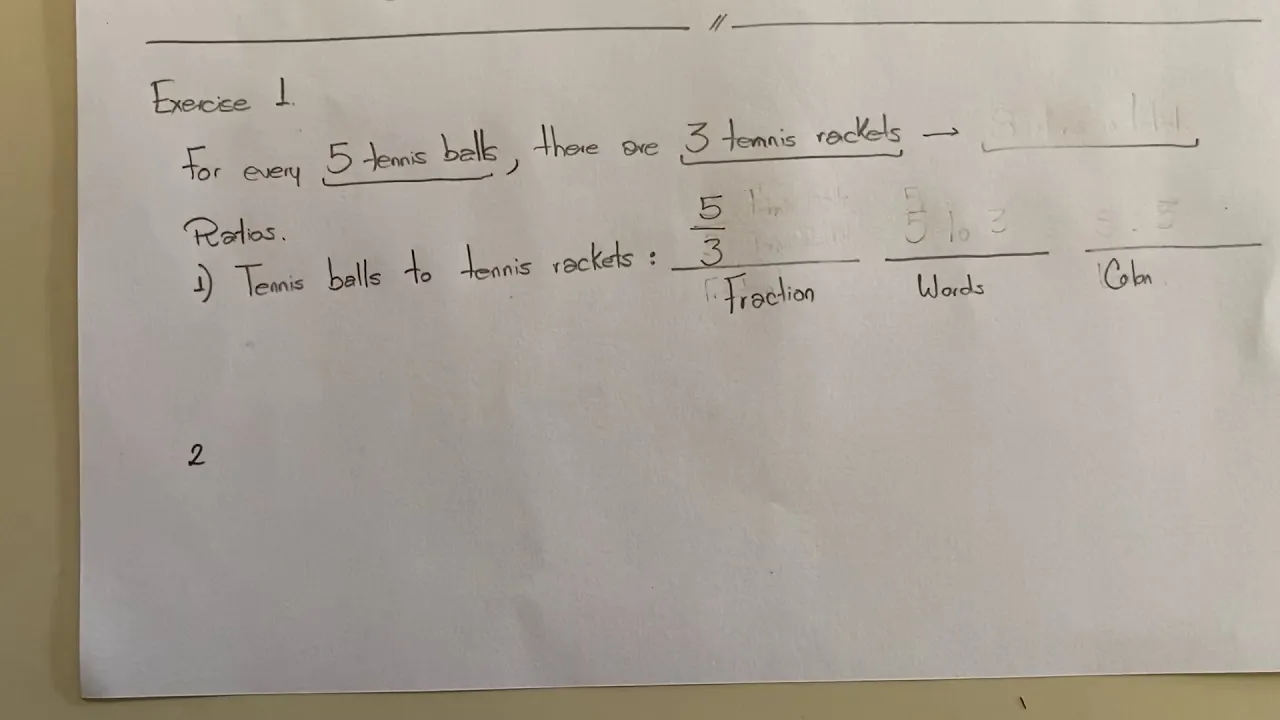 Exercise 1.
For every 5 tennis balls, there are 3 tennis rackets →
Ratios.
1) Tennis balls to tennis rackets : 5/3 5 to 3
Fraction Words Colon
2